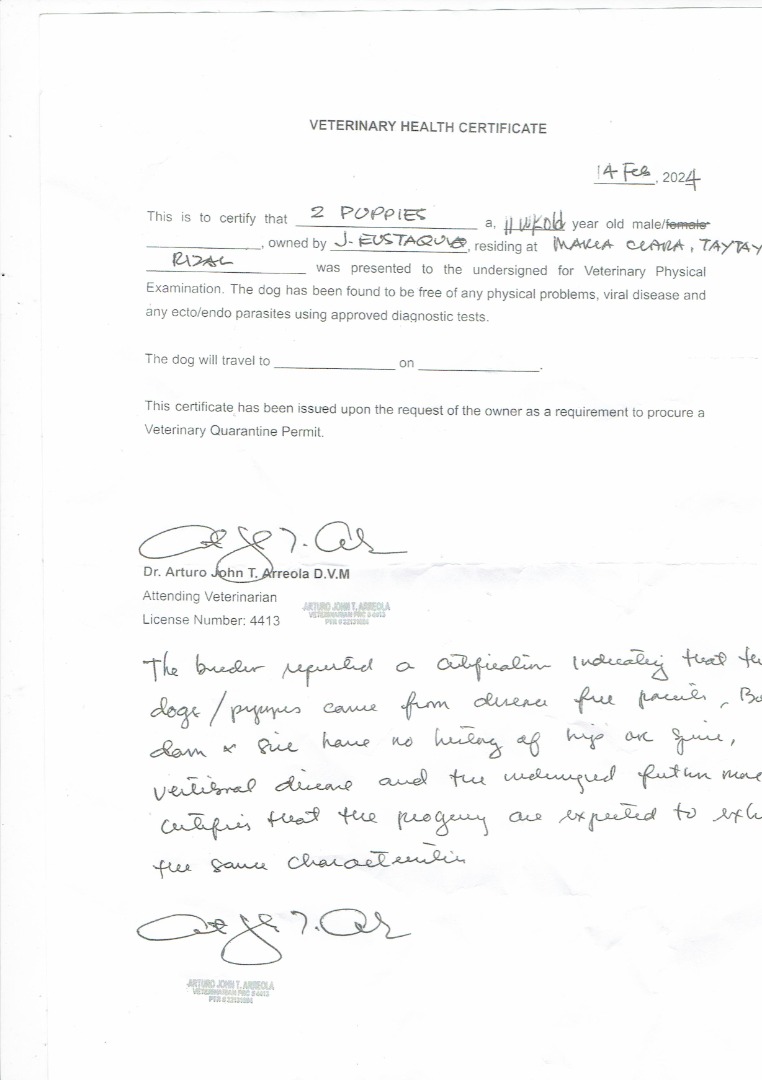 VETERINARY HEALTH CERTIFICATE
14 Feb, 2024
This is to certify that 2 PUPPIES a, 11 WK Old year old male/female
, owned by J. EUSTAQUIO, residing at MARIA CLARA, TAYTAY
RIZAL was presented to the undersigned for Veterinary Physical
Examination. The dog has been found to be free of any physical problems, viral disease and
any ecto/endo parasites using approved diagnostic tests.
The dog will travel to on .
This certificate has been issued upon the request of the owner as a requirement to procure a
Veterinary Quarantine Permit.
Dr. Arturo John T. Arreola D.V.M
Attending Veterinarian
License Number: 4413
ARTURO JOHN T. ARREOLA
VETERINARIAN PRC # 4413
The breeder reported a certification indicating that the
dogs / puppies came from disease free parents, Bo
dam & sire have no history of hips or spine,
vertibral disease and the undersigned further more
certifies that the progeny are expected to exh
the same characteristics
ARTURO JOHN T. ARREOLA
VETERINARIAN PRC # 4413